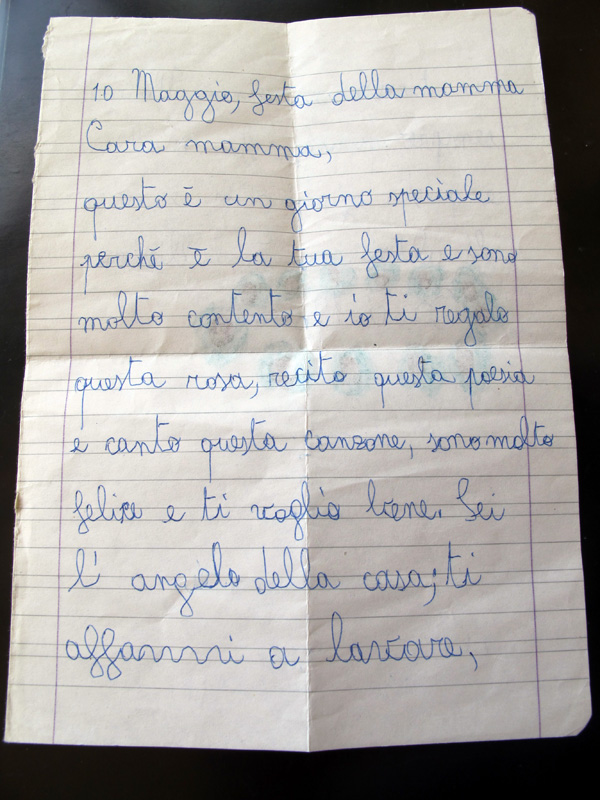 10 Maggio, festa della mamma
Cara mamma,
questo è un giorno speciale
perché è la tua festa e sono
molto contento e io ti regalo
questa rosa, recito questa poesia
e canto questa canzone, sono molto
felice e ti voglio bene. Sei
l' angelo della casa; ti
affanni a lavorare,